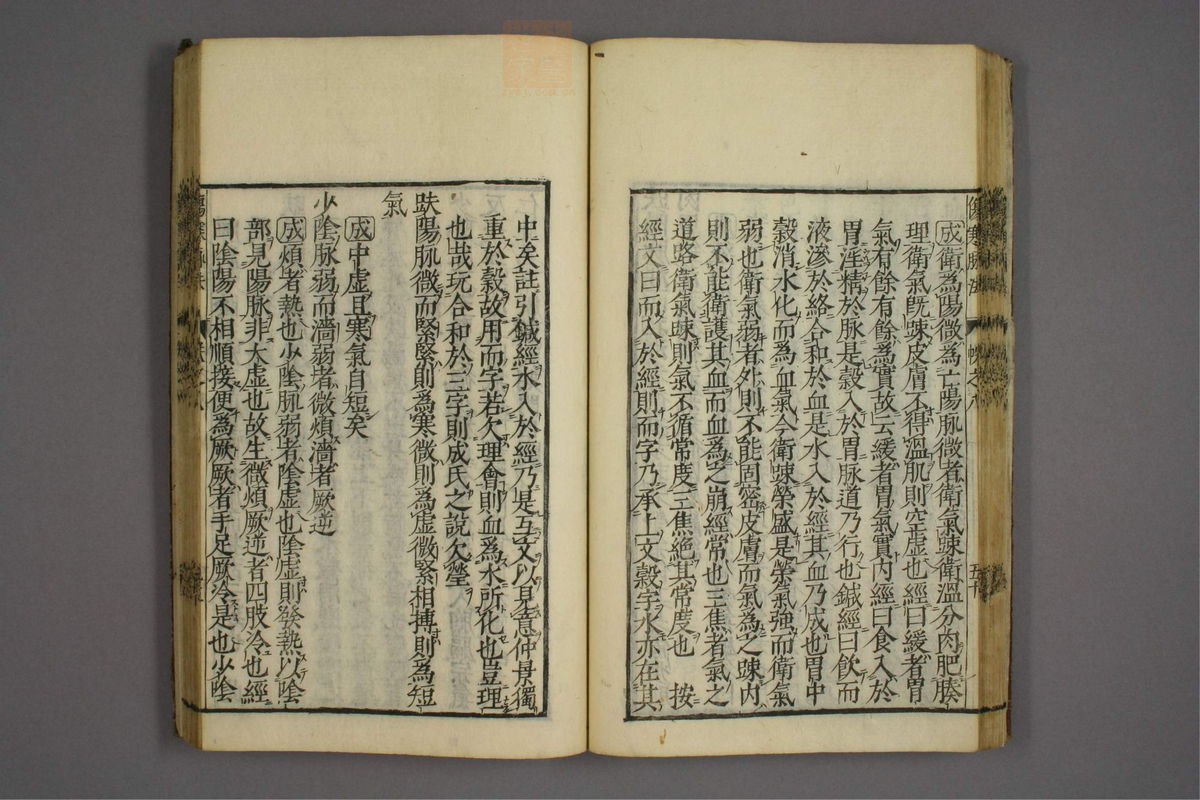 成衛為陽微為亡陽脉微者衛氣踈衛溫分肉肥腠
理衛氣既踈皮膚不得溫肌則空虛也經曰緩者胃
氣有餘有餘為實故云緩者胃氣實內經曰食入於
胃淫精於脉是穀入於胃脉道乃行也鍼經曰飲而
液滲於絡合和於血是水入於經其血乃成也胃中
穀消水化而為血氣今衛踈榮盛是榮氣強而衛氣
弱也衛氣弱者外則不能固密皮膚而氣為之踈內
則不能衛護其血而血為之崩經常也三焦者氣之
道路衛氣踈則氣不循常度三焦絕其常度也 按
經文曰而入於經則而字乃承上文穀字水亦在其
中矣註引鍼經水入於經乃是互文以見意仲景獨
重於穀故用而字若欠理會則血為水所化也豈理
也哉玩合和於三字則成氏之說欠瑩
趺陽脉微而緊緊則為寒微則為虛微緊相搏則為短
氣
成中虛且寒氣自短矣
少陰脉弱而濇弱者微煩濇者厥逆
成煩者熱也少陰脉弱者陰虛也陰虛則發熱以陰
部見陽脉非大虛也故生微煩厥逆者四肢冷也經
曰陰陽不相順接便為厥厥者手足厥冷是也少陰